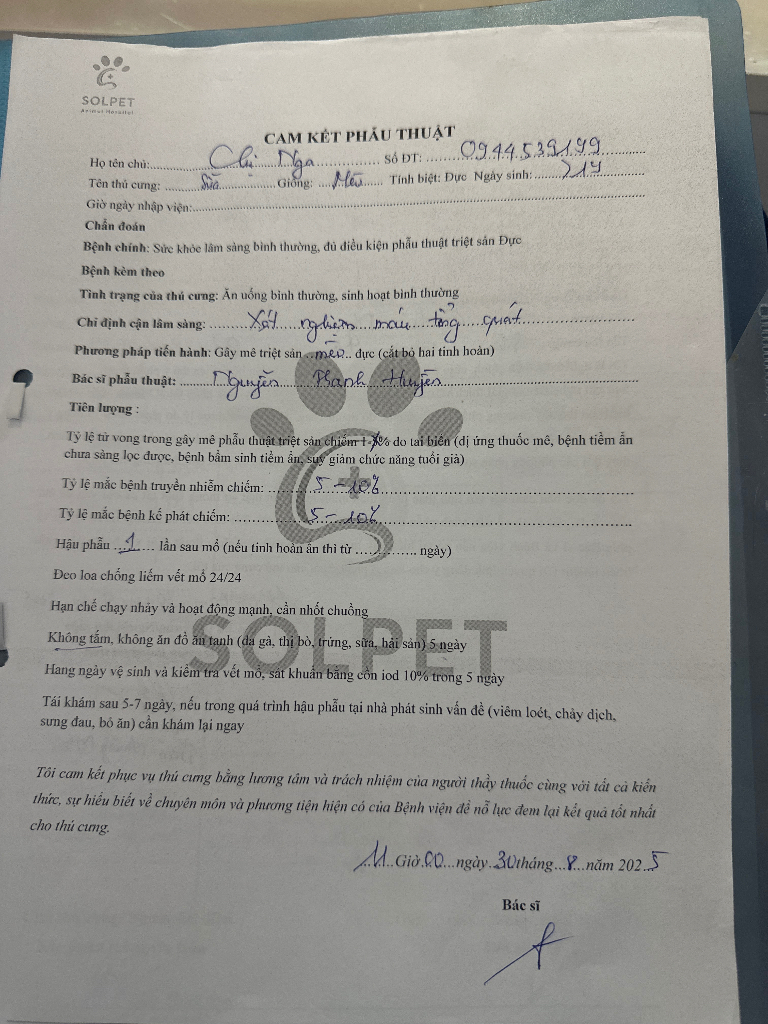 SOLPET
Animal Hospital
CAM KẾT PHẪU THUẬT
Họ tên chủ: Chị Nga Số ĐT: 0944539199
Tên thú cưng: Sữa Giống: Mèo Tính biệt: Đực Ngày sinh:
Giờ ngày nhập viện:
Chẩn đoán
Bệnh chính: Sức khỏe lâm sàng bình thường, đủ điều kiện phẫu thuật triệt sản Đực
Bệnh kèm theo
Tình trạng của thú cưng: Ăn uống bình thường, sinh hoạt bình thường
Chỉ định cận lâm sàng: Xét nghiệm máu tổng quát
Phương pháp tiến hành: Gây mê triệt sản mèo đực (cắt bỏ hai tinh hoàn)
Bác sĩ phẫu thuật: Nguyễn Thanh Huyền
Tiên lượng :
Tỷ lệ tử vong trong gây mê phẫu thuật triệt sản chiếm 1-% do tai biến (dị ứng thuốc mê, bệnh tiềm ẩn
chưa sàng lọc được, bệnh bẩm sinh tiềm ẩn, suy giảm chức năng tuổi già)
Tỷ lệ mắc bệnh truyền nhiễm chiếm: 5-10%
Tỷ lệ mắc bệnh kế phát chiếm: 5-10%
Hậu phẫu 1 lần sau mổ (nếu tinh hoàn ẩn thì từ ngày)
Đeo loa chống liếm vết mổ 24/24
Hạn chế chạy nhảy và hoạt động mạnh, cần nhốt chuồng
Không tắm, không ăn đồ ăn tanh (da gà, thị bò, trứng, sữa, hải sản) 5 ngày
Hang ngày vệ sinh và kiểm tra vết mổ, sát khuẩn bằng cồn iod 10% trong 5 ngày
Tái khám sau 5-7 ngày, nếu trong quá trình hậu phẫu tại nhà phát sinh vấn đề (viêm loét, chảy dịch,
sưng đau, bỏ ăn) cần khám lại ngay
SOLPET
Tôi cam kết phục vụ thú cưng bằng lương tâm và trách nhiệm của người thầy thuốc cùng với tất cả kiến
thức, sự hiểu biết về chuyên môn và phương tiện hiện có của Bệnh viện để nỗ lực đem lại kết quả tốt nhất
cho thú cưng.
11 Giờ 00 ngày 30 tháng 8 năm 2025
Bác sĩ